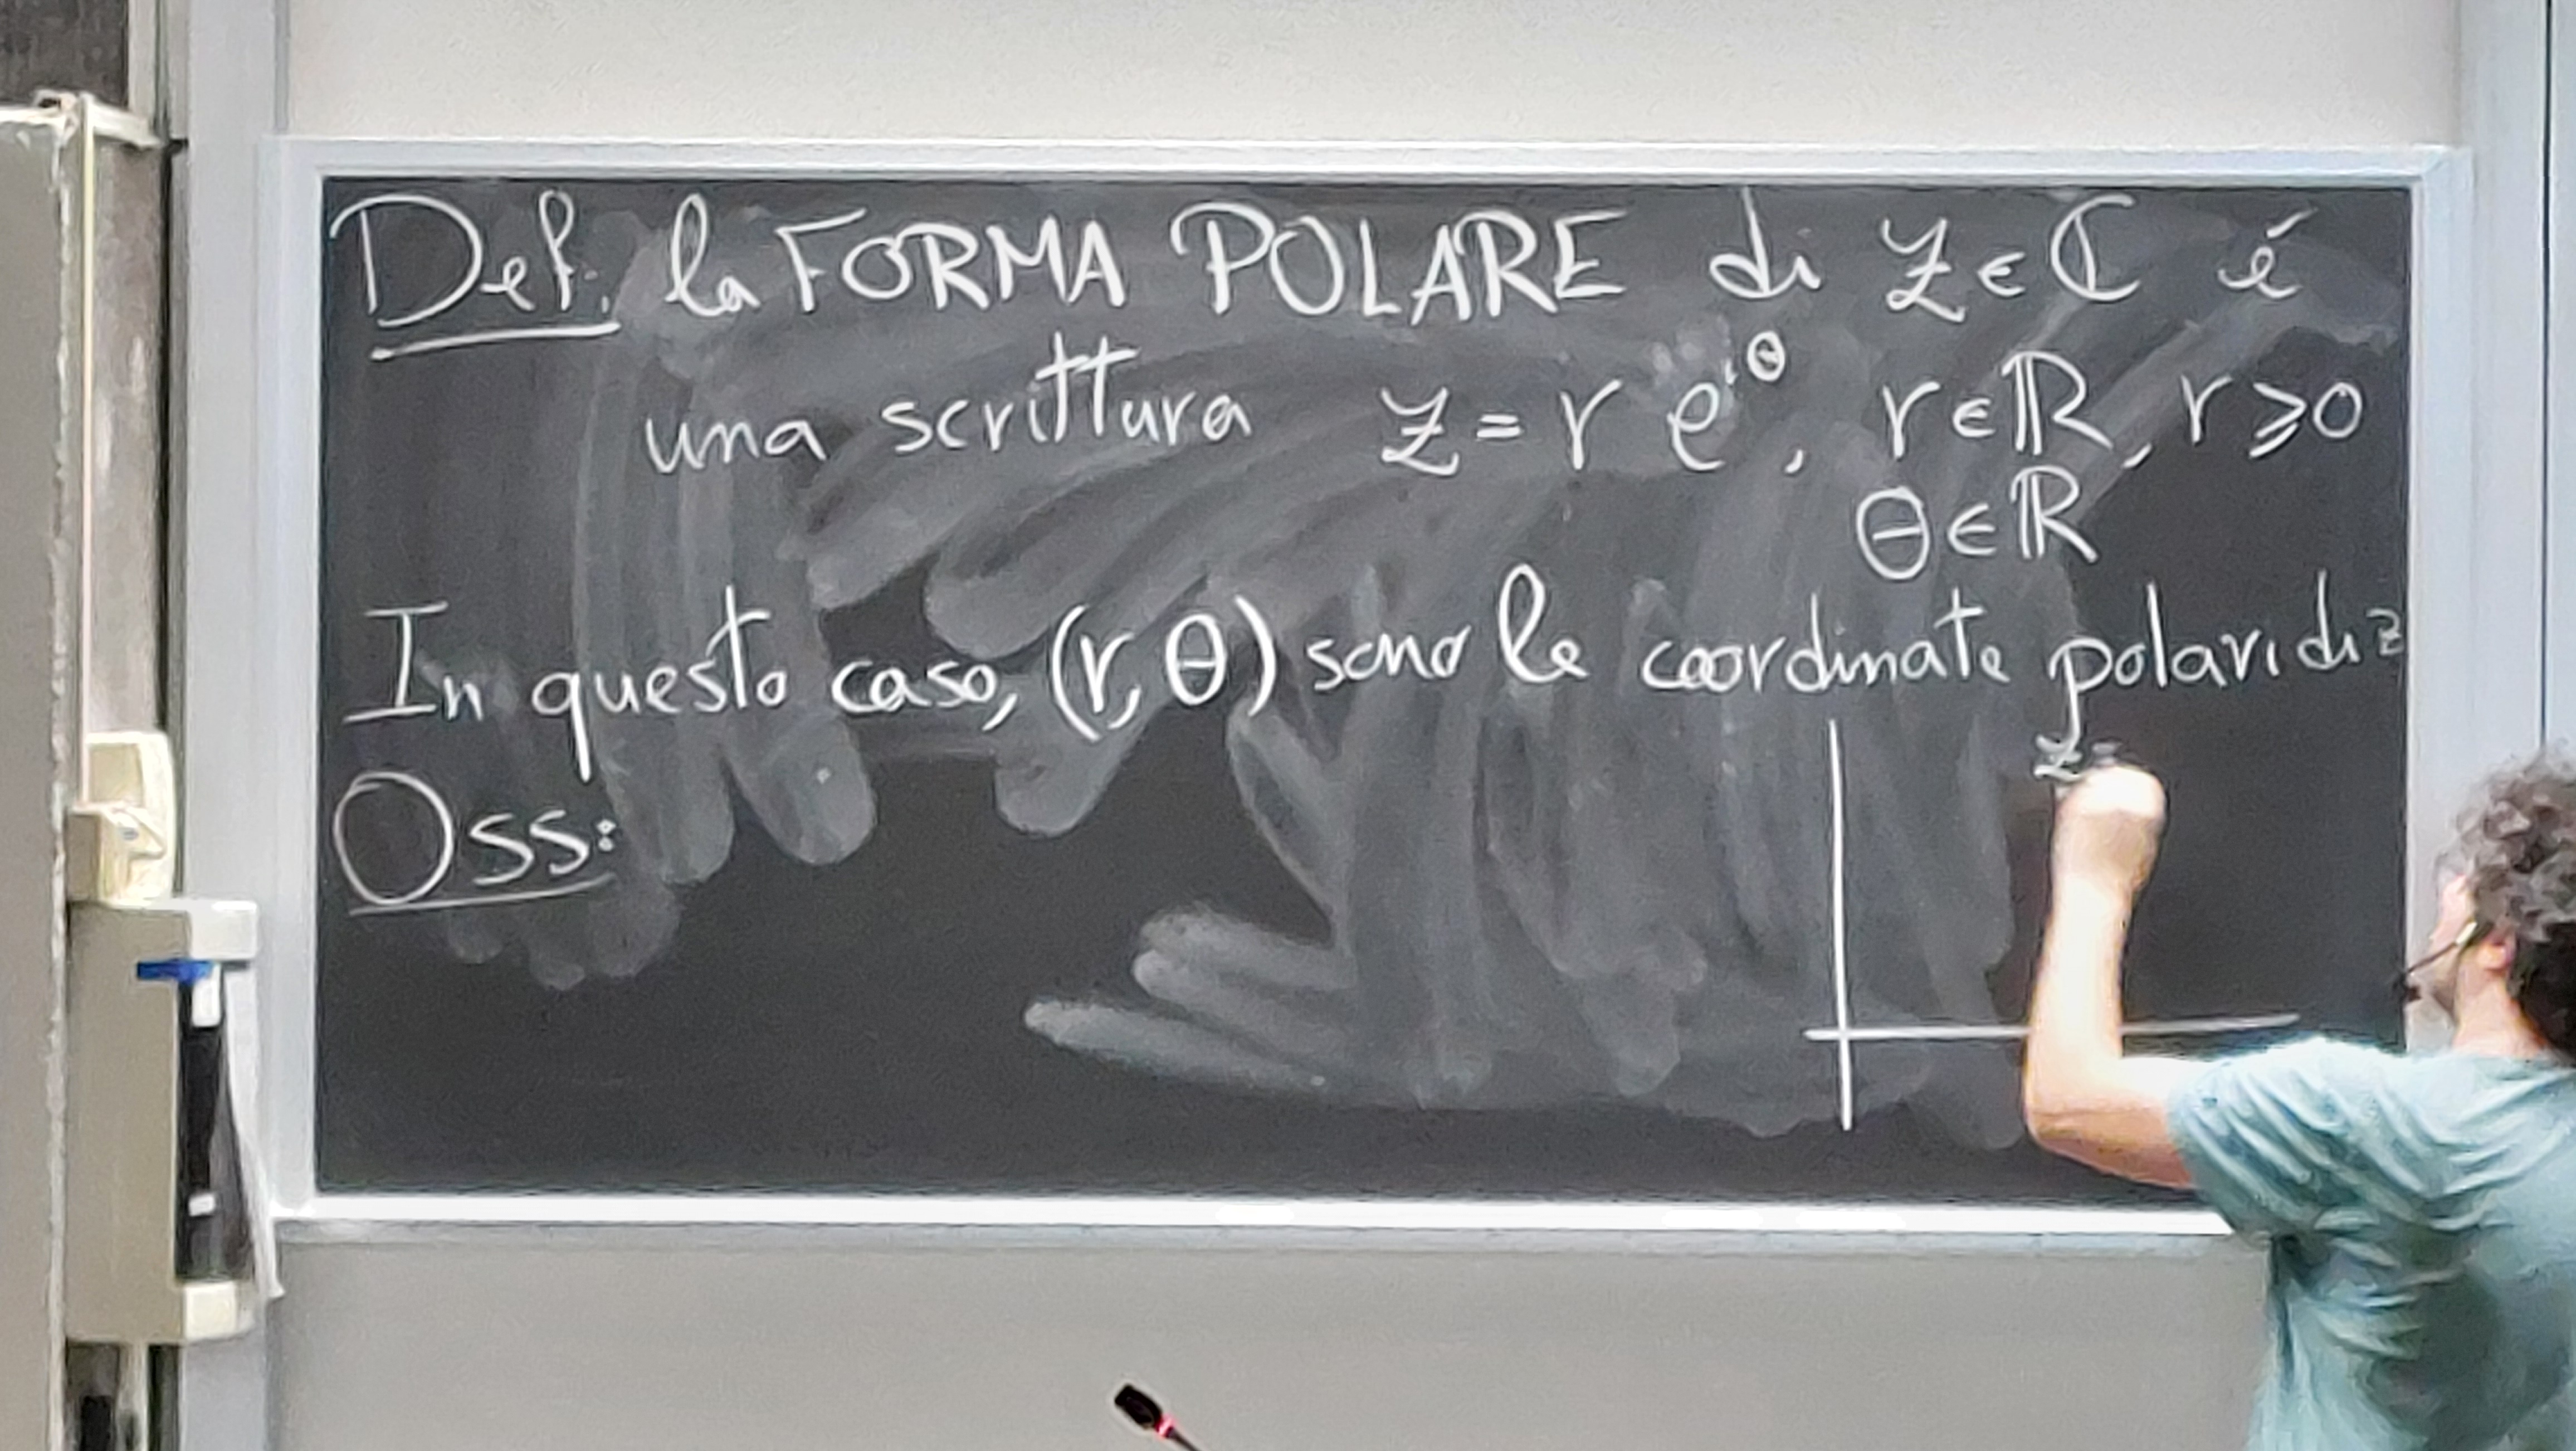 Def: la FORMA POLARE di z ∈ ℂ é
una scrittura z = r e^{iθ}, r ∈ ℝ, r ⩾ 0
θ ∈ ℝ
In questo caso, (r, θ) sono le coordinate polari di z
z =
Oss: